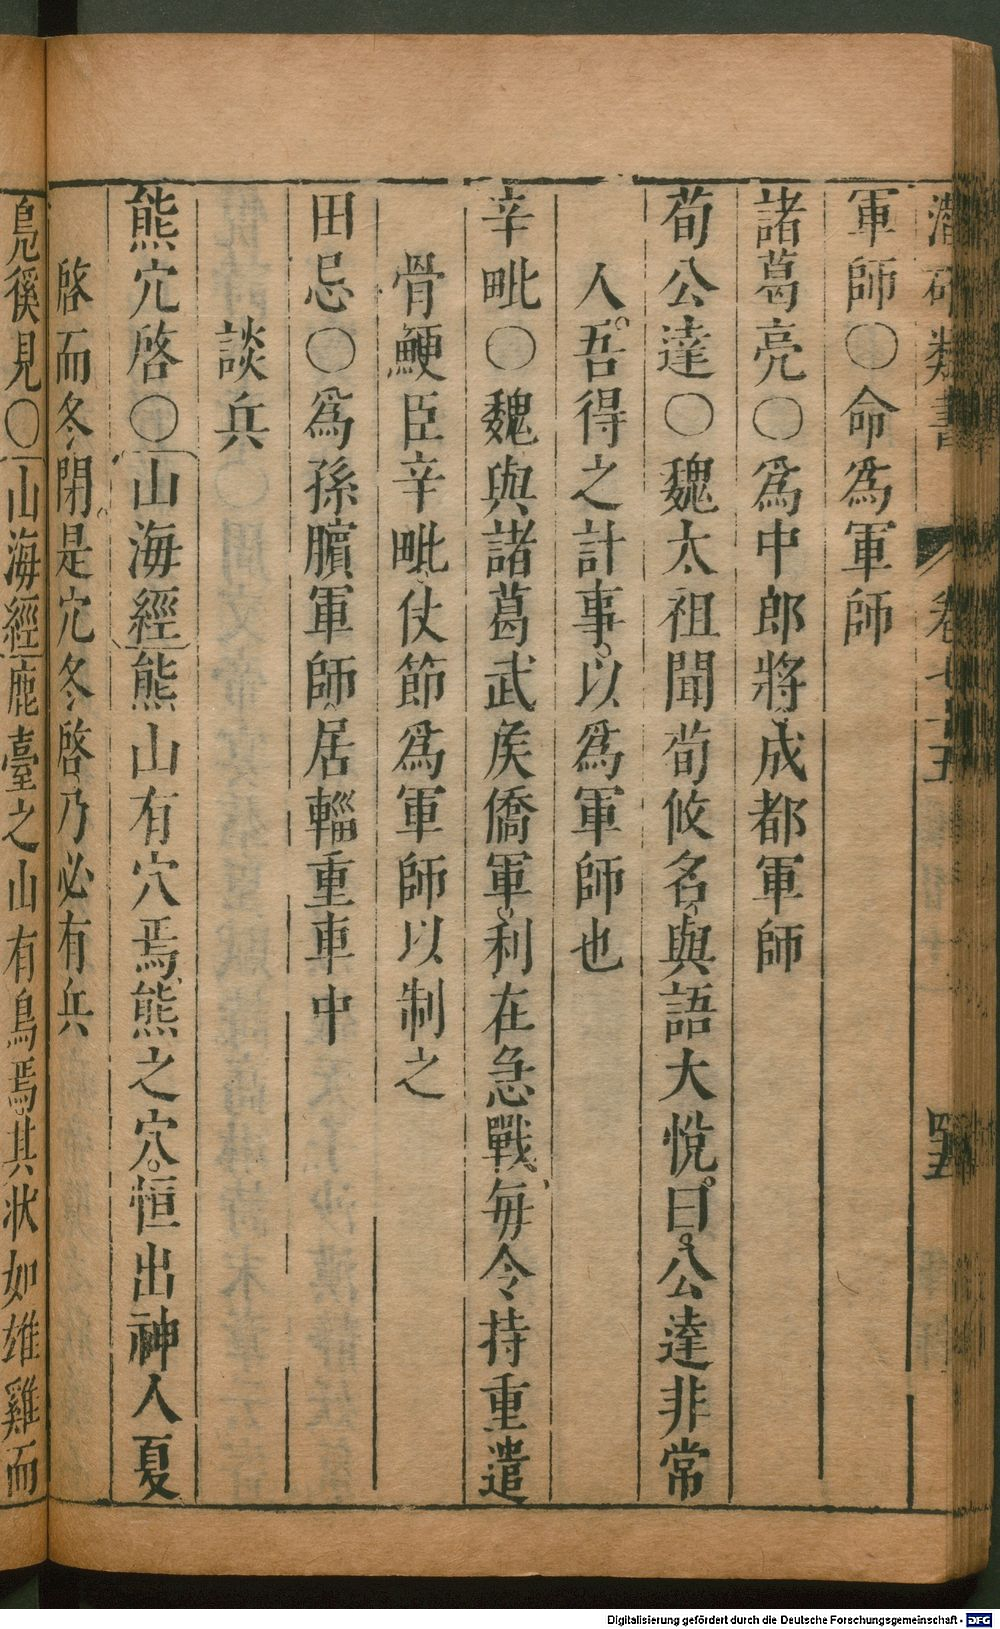 潛確類書 卷七十五 四五
軍師〇命爲軍師
諸葛亮〇爲中郎將成都軍師
荀公達〇魏太祖聞荀攸名與語大悅曰公達非常
人吾得之計事以爲軍師也
辛毗〇魏與諸葛武矦僑軍利在急戰每令持重遣
骨鯁臣辛毗仗節爲軍師以制之
田忌〇爲孫臏軍師居輜重車中
談兵
熊穴啓〇山海經熊山有穴焉熊之穴恒出神人夏
啓而冬閉是穴冬啓乃必有兵
鳧徯見〇山海經鹿臺之山有鳥焉其狀如雄雞而
Digitalisierung gefördert durch die Deutsche Forschungsgemeinschaft - DFG